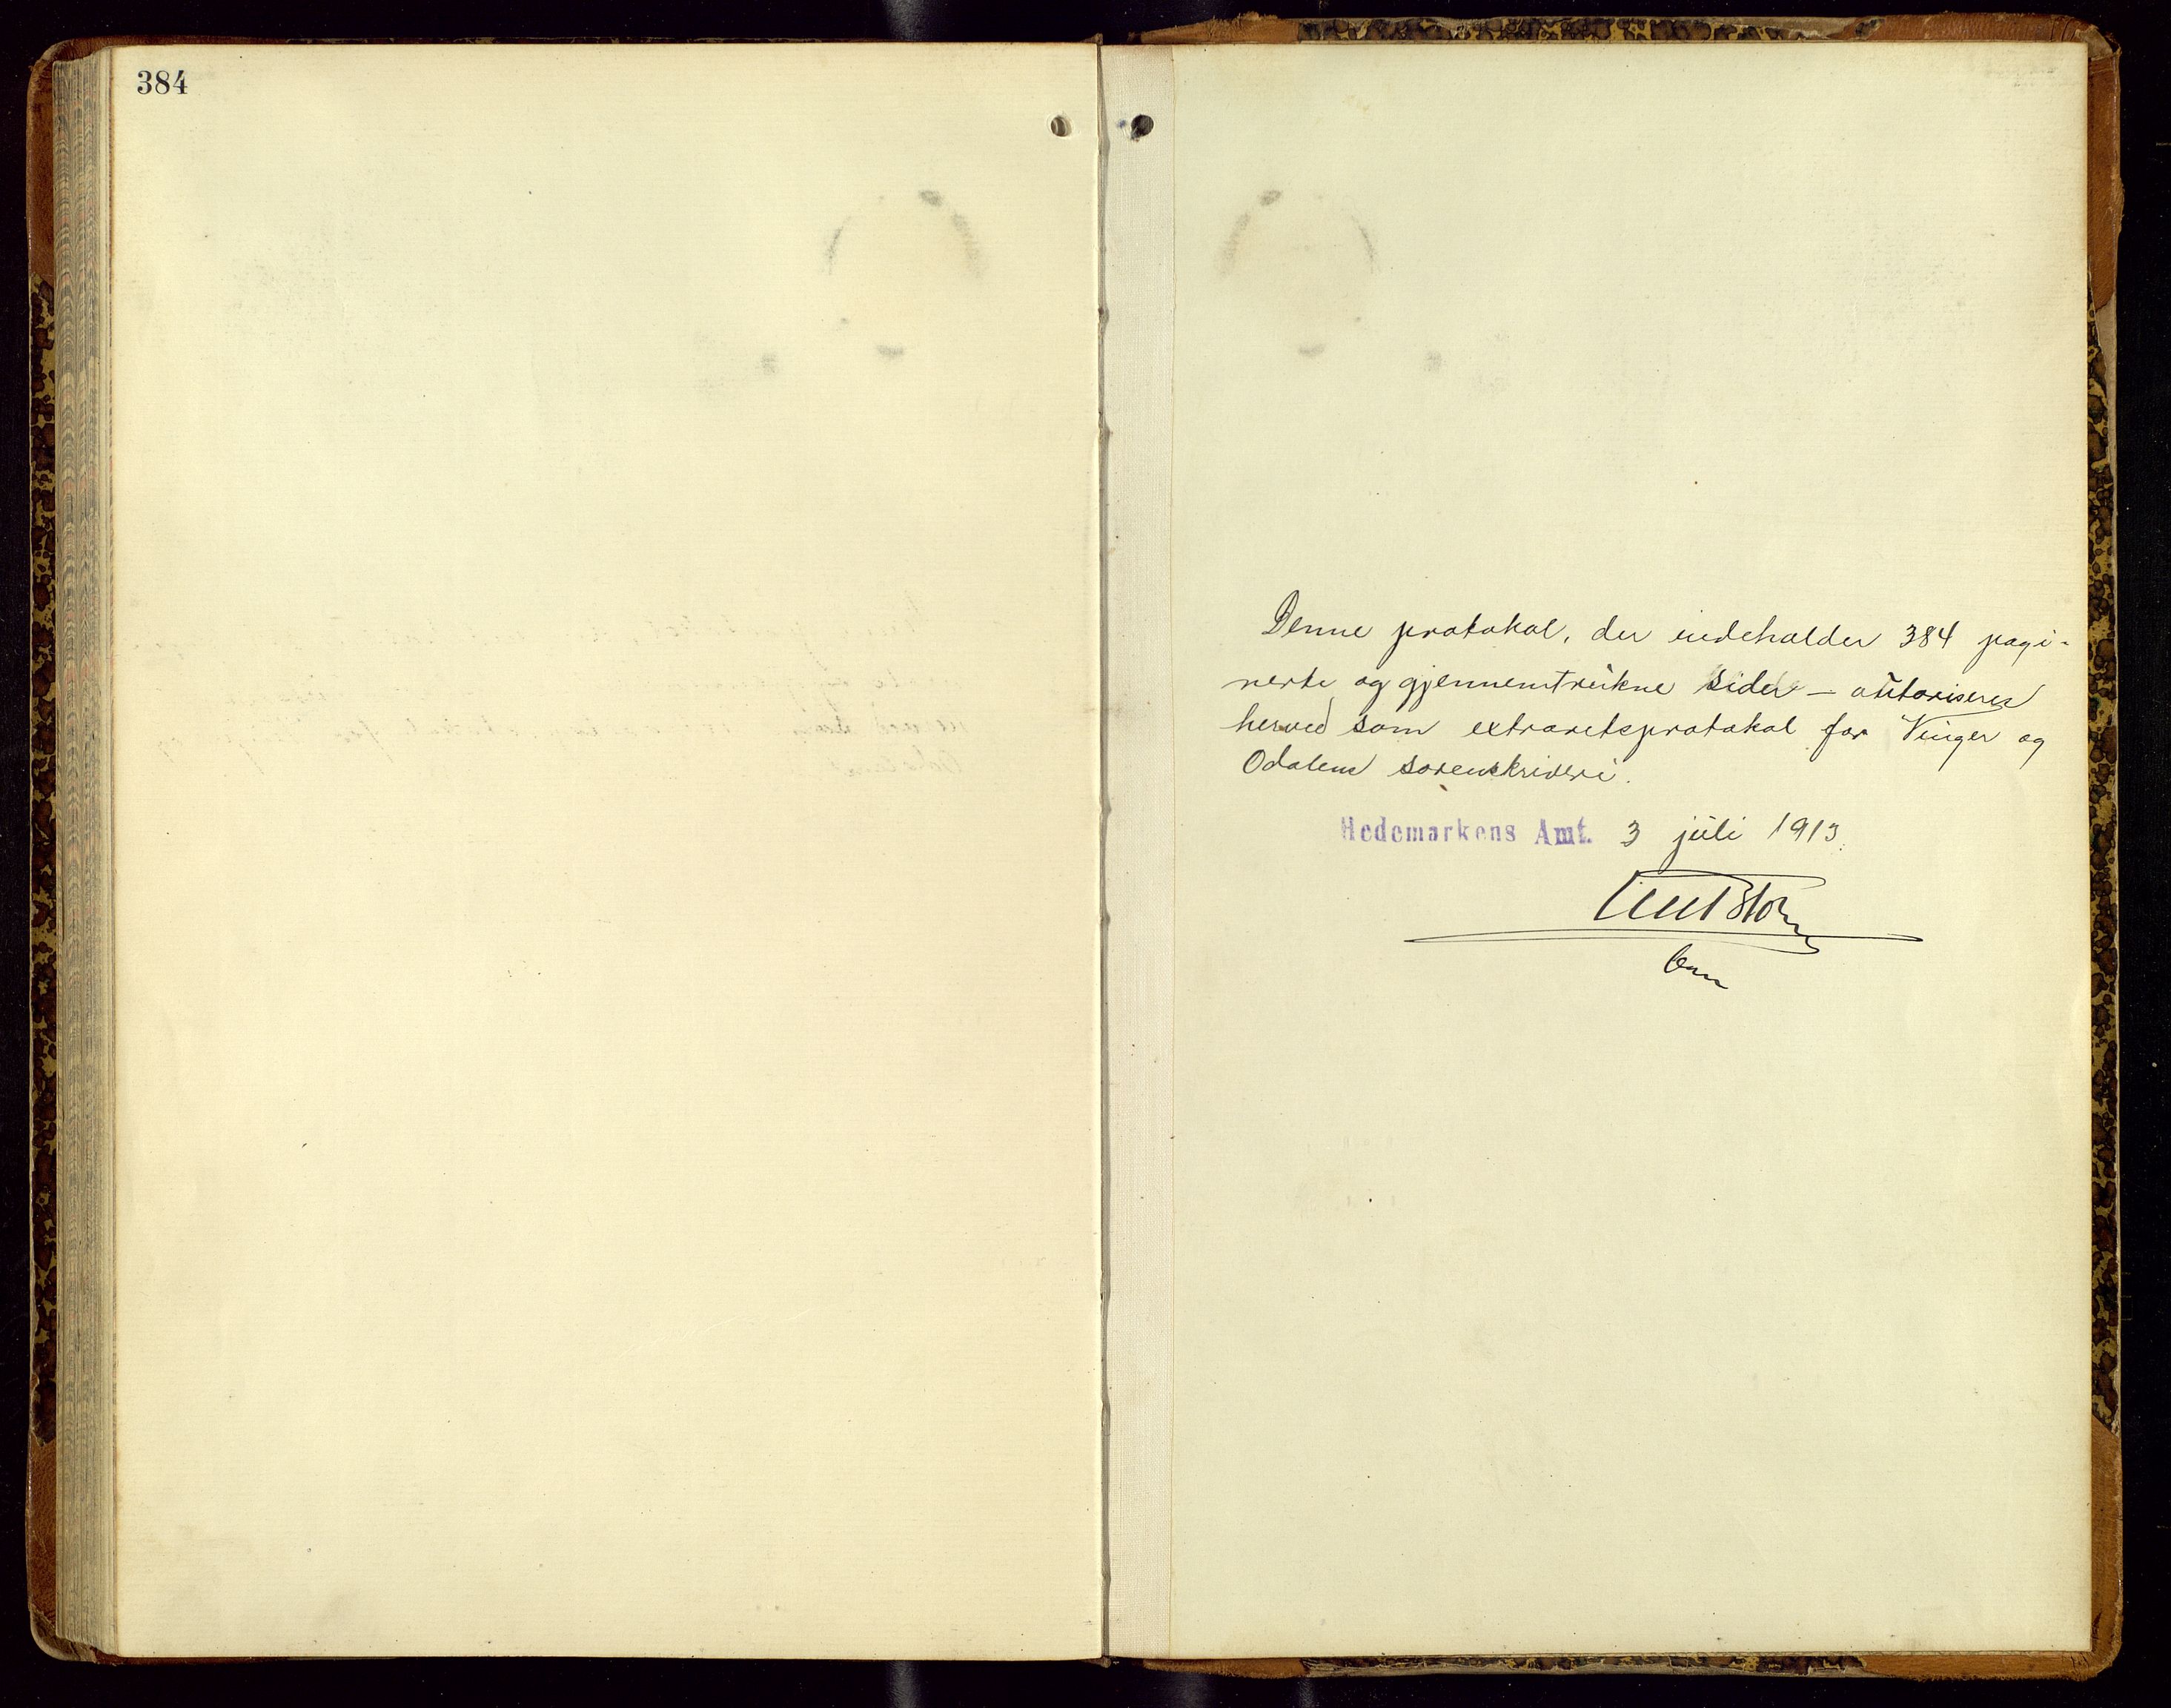 384
Denne protokol, der indeholder 384 pagi-
nerte og gjennemtrukne sider — autoriseres
herved som extraretsprotokol for Vinger og
Odalens sorenskriveri.
Hedemarkens Amt. 3 juli 1913.